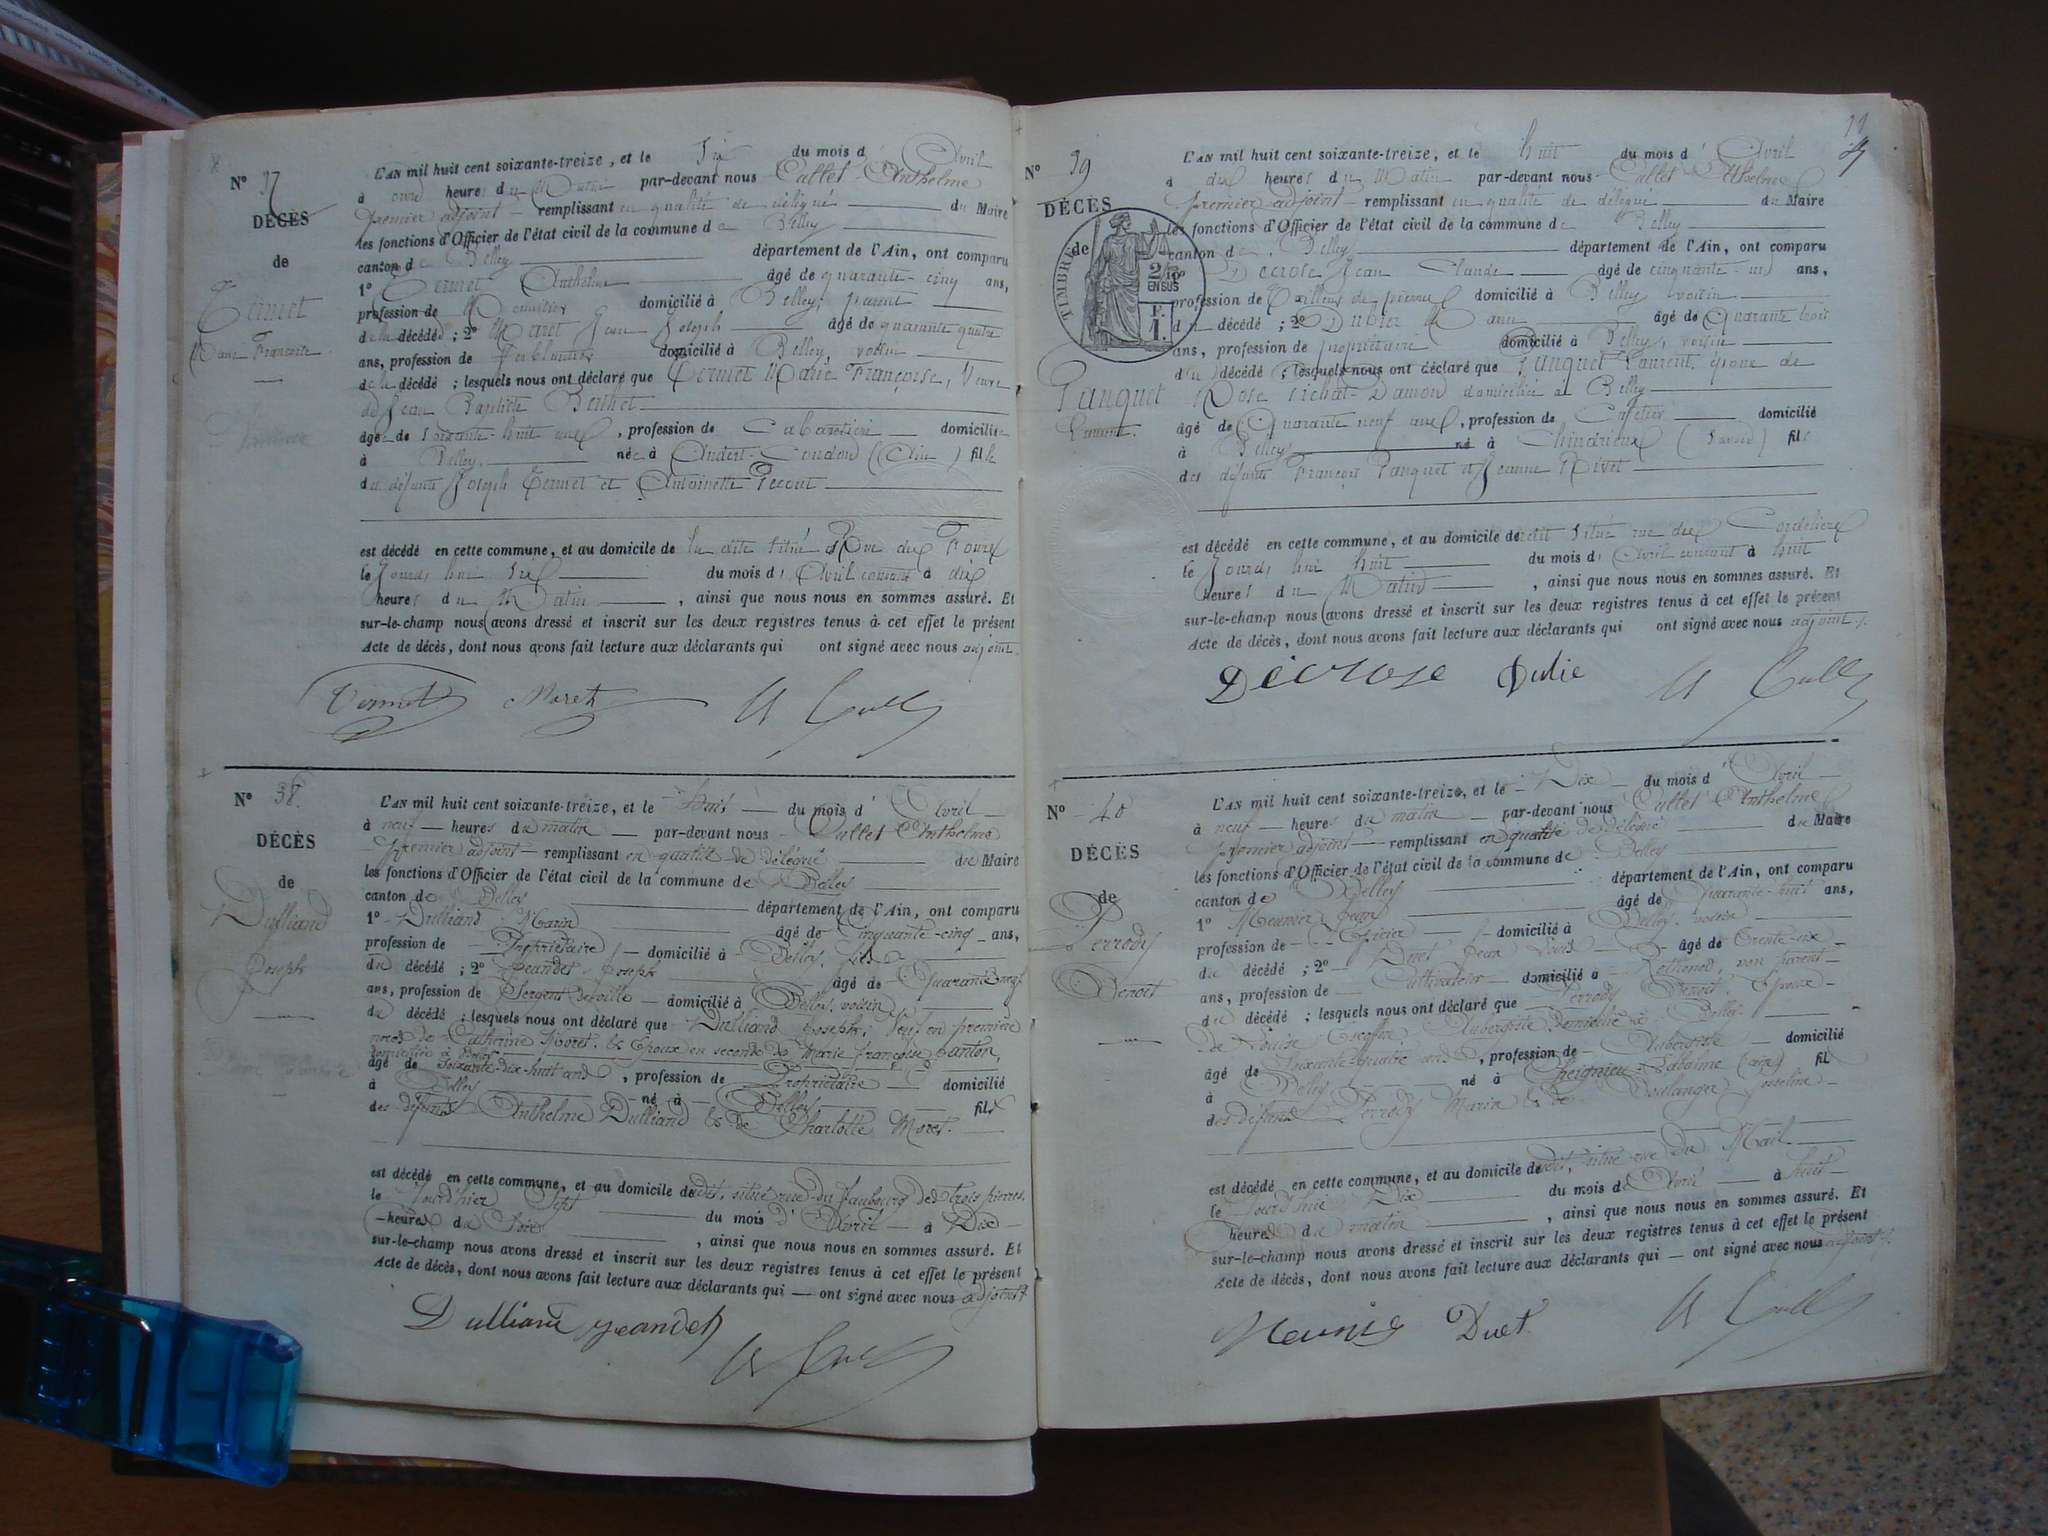 N° 37
DÉCÈS
de
Marie Françoise
L'AN mil huit cent soixante-treize, et le Six du mois d' Avril
à onze heures du Matin par-devant nous Cullet Anthelme
premier adjoint remplissant en qualité de délégué du Maire
les fonctions d'Officier de l'état civil de la commune de Belley
canton de Belley département de l'Ain, ont comparu
1° Anthelme âgé de quarante-cinq ans,
profession de domicilié à Belley, parent
de la décédée ; 2° Maret Jean Joseph âgé de quarante quatre
ans, profession de ferblantier domicilié à Belley, voisin
de la décédé ; lesquels nous ont déclaré que Marie Françoise, Veuve
de Jean Baptiste Berthet
âgée de soixante-huit ans, profession de Cabaretière domiciliée
à Belley, née à Andert-Condon (Ain) fille
des défunts Joseph et Antoinette
est décédé en cette commune, et au domicile de la dite situé Rue des Fours
le Jourd'hui Six du mois d' Avril courant à dix
heures du Matin, ainsi que nous nous en sommes assuré. Et
sur-le-champ nous avons dressé et inscrit sur les deux registres tenus à cet effet le présent
Acte de décès, dont nous avons fait lecture aux déclarants qui ont signé avec nous adjoint.
Maret A Cullet
N° 38.
DÉCÈS
de
Dulliand
Joseph
L'AN mil huit cent soixante-treize, et le Huit du mois d' Avril
à neuf heures du matin par-devant nous Cullet Anthelme
premier adjoint remplissant en qualité de délégué du Maire
les fonctions d'Officier de l'état civil de la commune de Belley
canton de Belley département de l'Ain, ont comparu
1° Dulliand Marin âgé de Cinquante-cinq ans,
profession de Propriétaire domicilié à Belley, fils
du décédé ; 2° Jeandet Joseph âgé de Quarante neuf
ans, profession de Sergent de ville domicilié à Belley, voisin
du décédé ; lesquels nous ont déclaré que Dulliand Joseph, Veuf en première
noces de Catherine Moret, & Epoux en seconde de Marie françoise
domicilié à Belley
âgé de Soixante-dix-huit ans, profession de Propriétaire domicilié
à Belley né à Belley fils
des défunts Anthelme Dulliand & de Charlotte Moret.
est décédé en cette commune, et au domicile dudit, situé rue du faubourg des trois pierres.
le Jourd'hier Sept du mois d' Avril à Dix
heures du Soir, ainsi que nous nous en sommes assuré. Et
sur-le-champ nous avons dressé et inscrit sur les deux registres tenus à cet effet le présent
Acte de décès, dont nous avons fait lecture aux déclarants qui ont signé avec nous adjoint.
Dulliand Jeandet
A Cullet
N° 39
DÉCÈS
de
TIMBRE
2/10es
EN SUS
1 F.
Panquet
Laurent.
L'AN mil huit cent soixante-treize, et le huit du mois d' Avril
à dix heures du Matin par-devant nous Cullet Anthelme
premier adjoint remplissant en qualité de délégué du Maire
les fonctions d'Officier de l'état civil de la commune de Belley
canton de Belley département de l'Ain, ont comparu
1° Décrose Jean Claude âgé de cinquante-un ans,
profession de Tailleur de pierres domicilié à Belley voisin
du décédé ; 2° âgé de Quarante trois
ans, profession de propriétaire domicilié à Belley, voisin
du décédé ; lesquels nous ont déclaré que Panquet Laurent, époux de
Rose domicilié à Belley
âgé de Quarante neuf ans, profession de Cafetier domicilié
à Belley né à Chindrieux (Savoie) fils
des défunts François Panquet et Jeanne Rivet
est décédé en cette commune, et au domicile dudit situé rue des Cordeliers
le Jourd'hui huit du mois d' Avril courant à huit
heures du Matin, ainsi que nous nous en sommes assuré. Et
sur-le-champ nous avons dressé et inscrit sur les deux registres tenus à cet effet le présent
Acte de décès, dont nous avons fait lecture aux déclarants qui ont signé avec nous adjoint.
Décrose A Cullet
N° 40
DÉCÈS
de
Perrody
Benoit
L'AN mil huit cent soixante-treize, et le Dix du mois d' Avril
à neuf heures du matin par-devant nous Cullet Anthelme
premier adjoint remplissant en qualité de délégué du Maire
les fonctions d'Officier de l'état civil de la commune de Belley
canton de Belley département de l'Ain, ont comparu
1° Meunier Jean âgé de Quarante-huit ans,
profession de Epicier domicilié à Belley, voisin
du décédé ; 2° Duet Jean Louis âgé de Trente-six
ans, profession de Cultivateur domicilié à Rothonod, non parent
du décédé ; lesquels nous ont déclaré que Perrody Benoit, Epoux
de Louise Aubergiste domicilié à Belley
âgé de Soixante-quatre ans, profession de Aubergiste domicilié
à Belley né à Cheignieu-Labalme (ain) fils
des défunts Perrody Marin & de Boulanger Josephte
est décédé en cette commune, et au domicile dudit, situé rue du Mail
le Jourd'hui Dix du mois de Avril à huit
heures du matin, ainsi que nous nous en sommes assuré. Et
sur-le-champ nous avons dressé et inscrit sur les deux registres tenus à cet effet le présent
Acte de décès, dont nous avons fait lecture aux déclarants qui ont signé avec nous adjoint.
Meunier Duet A Cullet